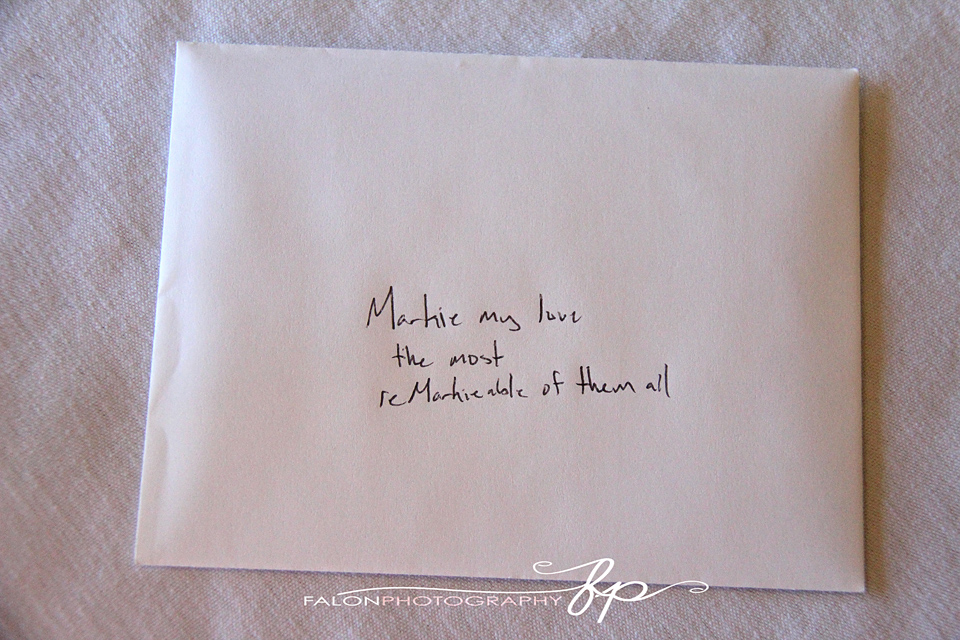 Markie my love
the most
reMarkieable of them all
FALONPHOTOGRAPHY fp